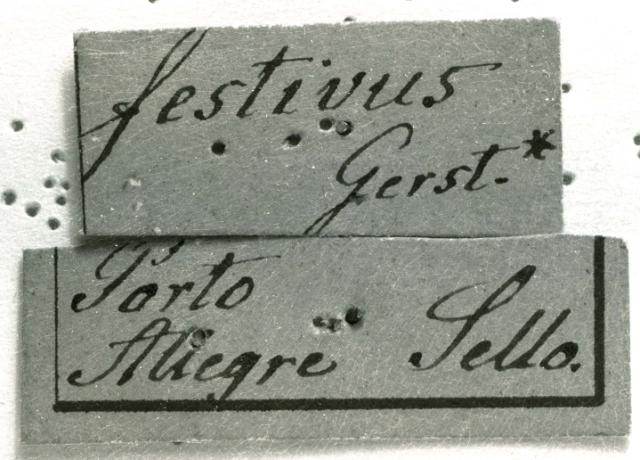 festivus
Gerst.*
Porto
Allegre Sello.